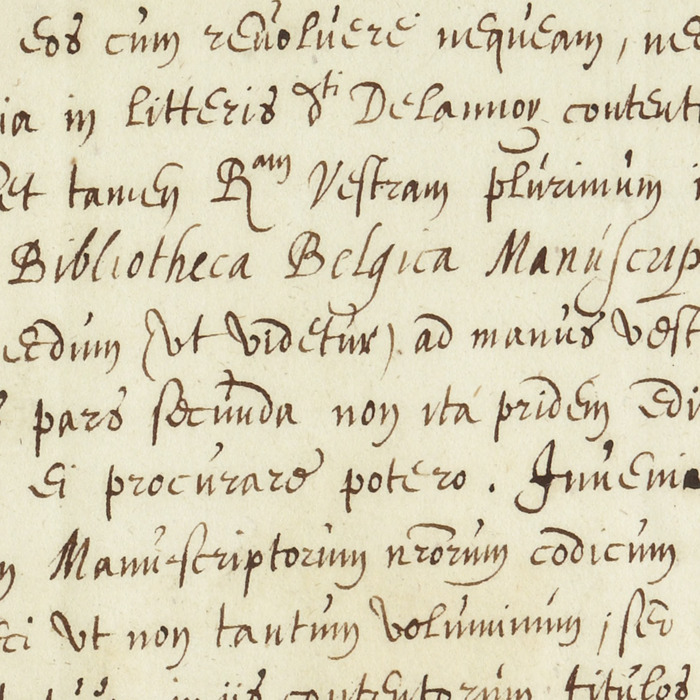 eos cum reuoluere nequeam, nec
ia in litteris dti Delannoy content
Et tamen Ram Vestram plurimum i
Bibliotheca Belgica Manuscrip
edum (ut videtur) ad manus vest
pars secunda non ita pridem edi
ei procurare potero. Inueni
Manuscriptorum nrorum codicum
ut non tantum voluminum, sed
in iis contentorum titulos